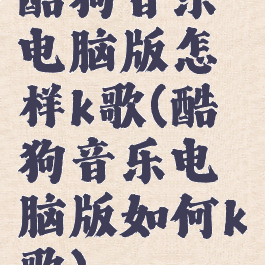 酷狗音乐
电脑版怎
样k歌(酷
狗音乐电
脑版如何k
歌)